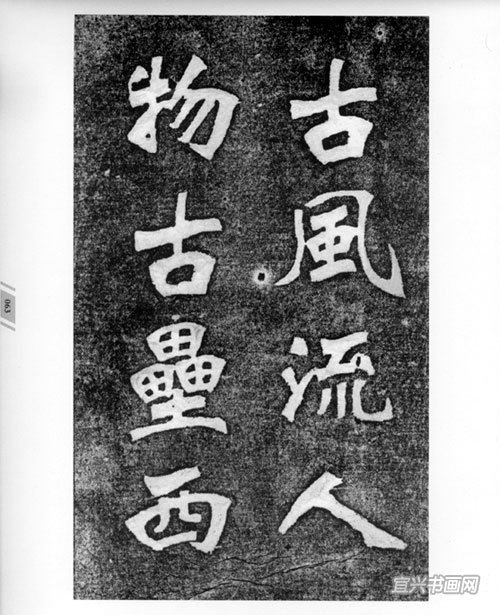 古風流人
物古壘西
063
宜兴书画网